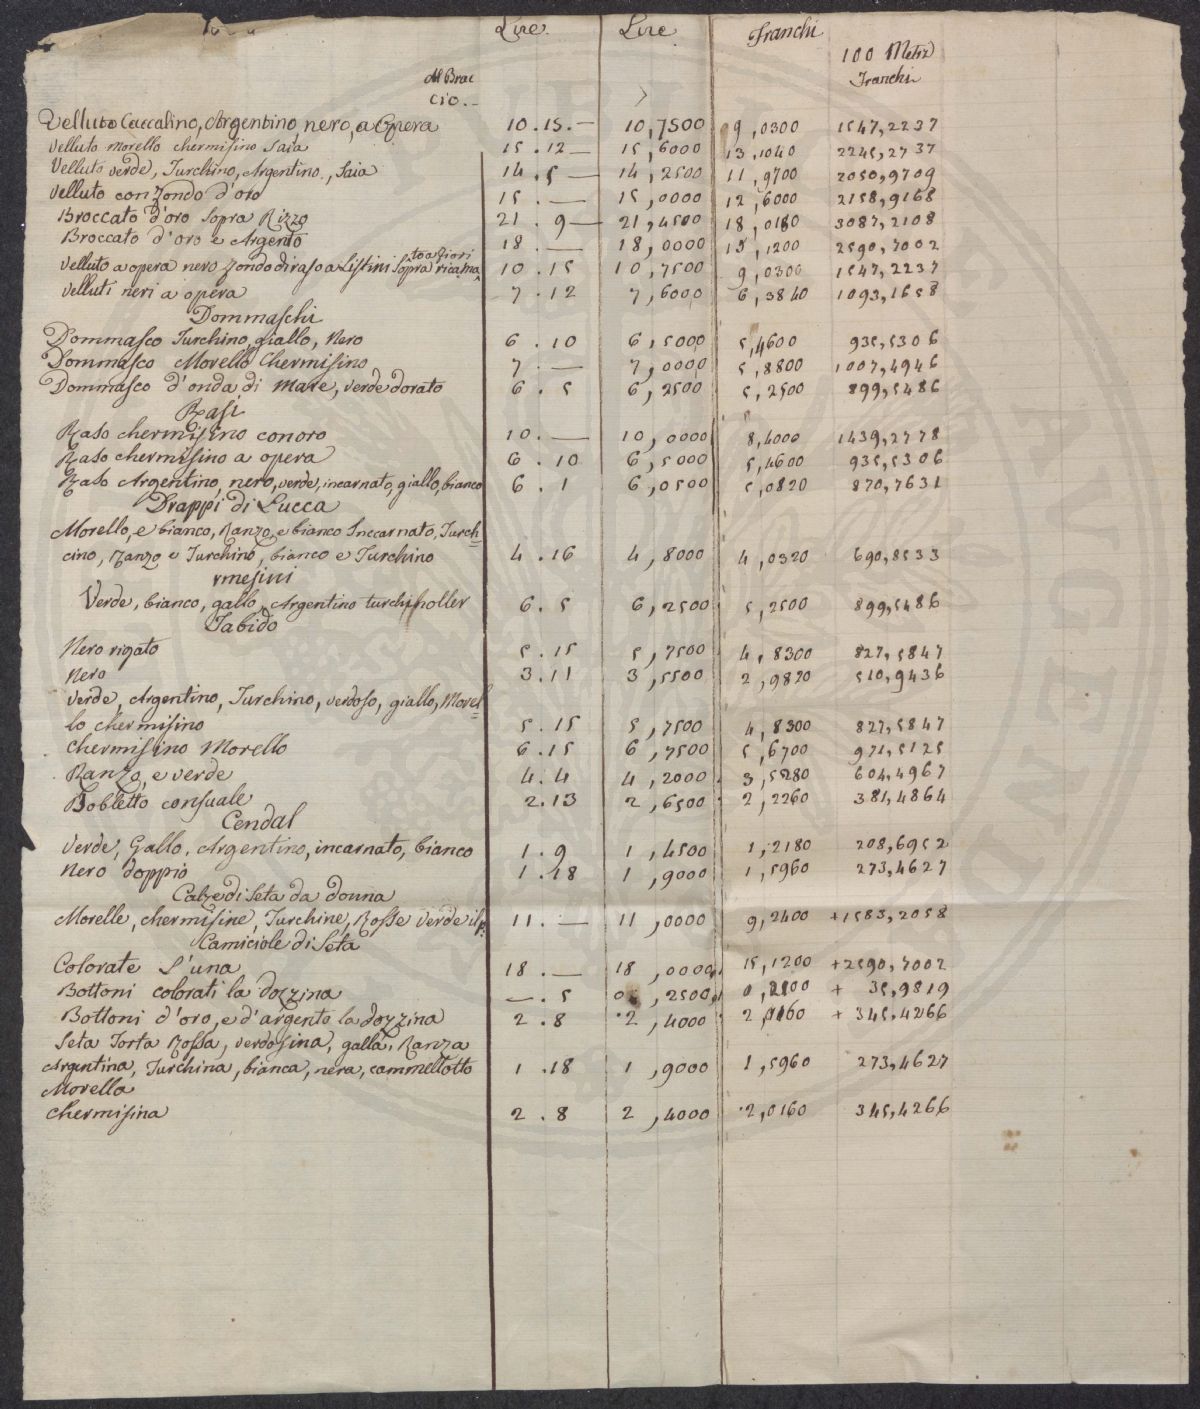 Lire. Lire Franchi
100 Metri
Franchi
Al Brac
cio.-
Velluto Caccalino, Argentino, nero, a Opera 10.15.— 10,7500 9,0300 1547,2237
Velluto Morello chermisino Saia 15.12— 15,6000 13,1040 2245,2737
Velluto verde, Turchino, Argentino, Saia 14.5— 14,2500 11,9700 2050,9709
Velluto con Zondo d'oro 15.— 15,0000 12,6000 2158,9168
Broccato d'oro sopra Rizzo 21.9— 21,4500 18,0180 3087,2108
Broccato d'oro e Argento 18.— 18,0000 15,1200 2590,7002
to a fiori
Velluto a opera nero Zondo di raso a Listini sopra ricama 10.15 10,7500 9,0300 1547,2237
Velluti neri a opera 7.12 7,6000 6,3840 1093,1658
Dommaschi
Dommasco Turchino, giallo, Nero 6.10 6,5000 5,4600 935,5306
Dommasco Morello Chermisino 7.— 7,0000 5,8800 1007,4946
Dommasco d'onda di Mare, verde dorato 6.5 6,2500 5,2500 899,5486
Rasi
Raso chermisino con oro 10.— 10,0000 8,4000 1439,2778
Raso chermisino a opera 6.10 6,5000 5,4600 935,5306
Raso Argentino, nero, verde, incarnato, giallo, bianco 6.1 6,0500 5,0820 870,7631
Drappi di Lucca
Morello, e bianco, Ranzo, e bianco Inccarnato, Turch=
cino, Ranzo e Turchino, bianco e Turchino 4.16 4,8000 4,0320 690,8533
rmesini
Verde, bianco, gallo, Argentino 6.5 6,2500 5,2500 899,5486
Tabido
Nero rigato 5.15 5,7500 4,8300 827,5847
Nero 3.11 3,5500 2,9820 510,9436
Verde, Argentino, Turchino, verdoso, giallo, Morel=
lo chermisino 5.15 5,7500 4,8300 827,5847
Chermisino Morello 6.15 6,7500 5,6700 971,5125
Ranzo, e verde 4.4 4,2000 3,5280 604,4967
Bobletto consuale 2.13 2,6500 2,2260 381,4864
Cendal
Verde, Gallo, Argentino, incarnato, bianco 1.9 1,4500 1,2180 208,6952
Nero doppio 1.18 1,9000 1,5960 273,4627
Calze di Seta da donna
Morelle, chermisine, Turchine, Rosse verde il p. 11.— 11,0000 9,2400 +1583,2058
Camiciole di Seta
Colorate l'una 18.— 18,0000 15,1200 +2590,7002
Bottoni colorati la dozzina —.5 0,2500 0,2100 + 35,9819
Bottoni d'oro, e d'argento la dozzina 2.8 2,4000 2,0160 + 345,4266
Seta Torta Rossa, verdosina, galla, Ranza
Argentina, Turchina, bianca, nera, cammellotto 1.18 1,9000 1,5960 273,4627
Morella
Chermisina 2.8 2,4000 2,0160 345,4266